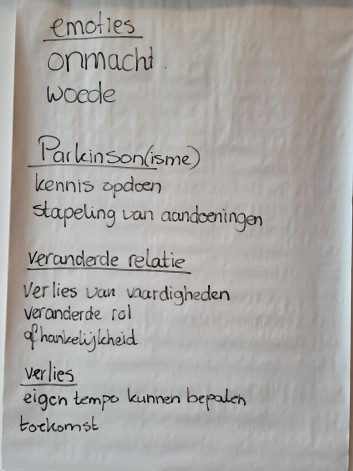 emoties
onmacht.
woede
Parkinson(isme)
kennis opdoen
stapeling van aandoeningen
veranderde relatie
verlies van vaardigheden
veranderde rol
afhankelijkheid
verlies
eigen tempo kunnen bepalen
toekomst